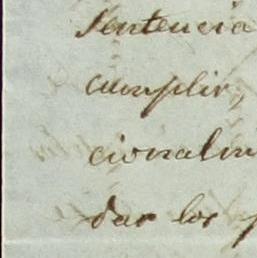 Sentencia
cumplir,
cionalm
dar los